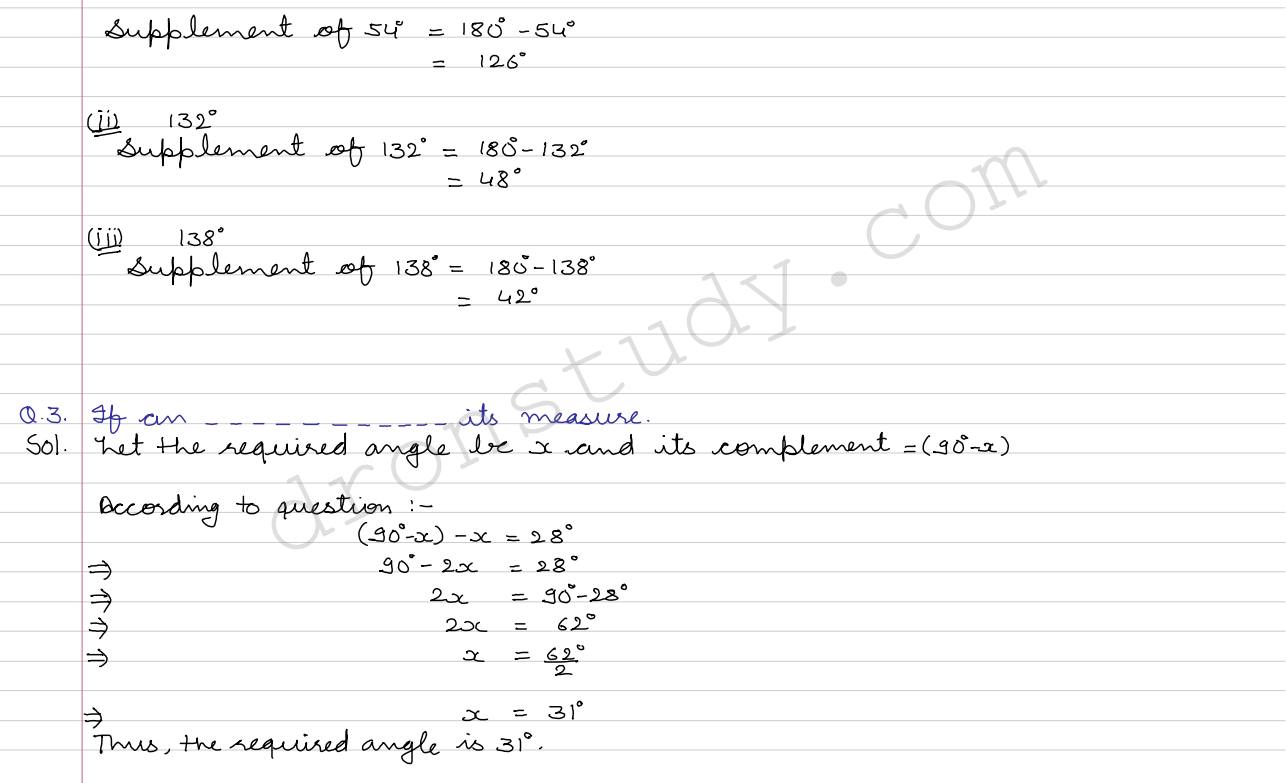 Supplement of 54° = 180° - 54°
= 126°
(ii) 132°
Supplement of 132° = 180° - 132°
= 48°
(iii) 138°
Supplement of 138° = 180° - 138°
= 42°
dronstudy.com
Q.3. If an _ _ _ _ _ _ _ _ _ _ _ _ its measure.
Sol. Let the required angle be x and its complement = (90° - x)
According to question :-
(90° - x) - x = 28°
⇒ 90° - 2x = 28°
⇒ 2x = 90° - 28°
⇒ 2x = 62°
⇒ x = 62°/2
⇒ x = 31°
Thus, the required angle is 31°.